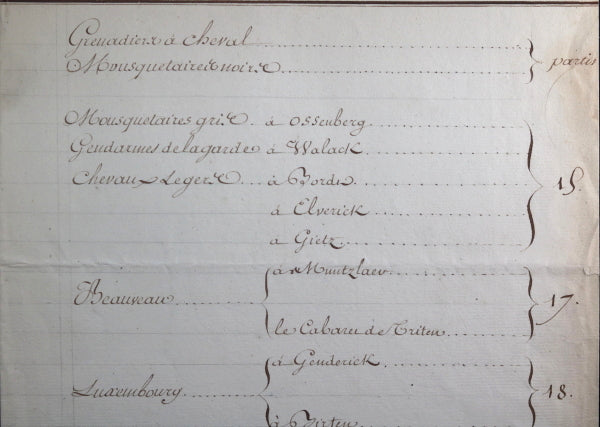 Grenadiers à cheval
Mousquetaires noirs } partis
Mousquetaires gris à Ossenberg
Gendarmes de la garde à Walack
Chevaux Legers à Bordt } 15.
à Elverick
à Gietz
à Muntzlaer
Beauveau } 17.
le Cabaret de Triten
à Genderick
Luxembourg } 18.
à Birten